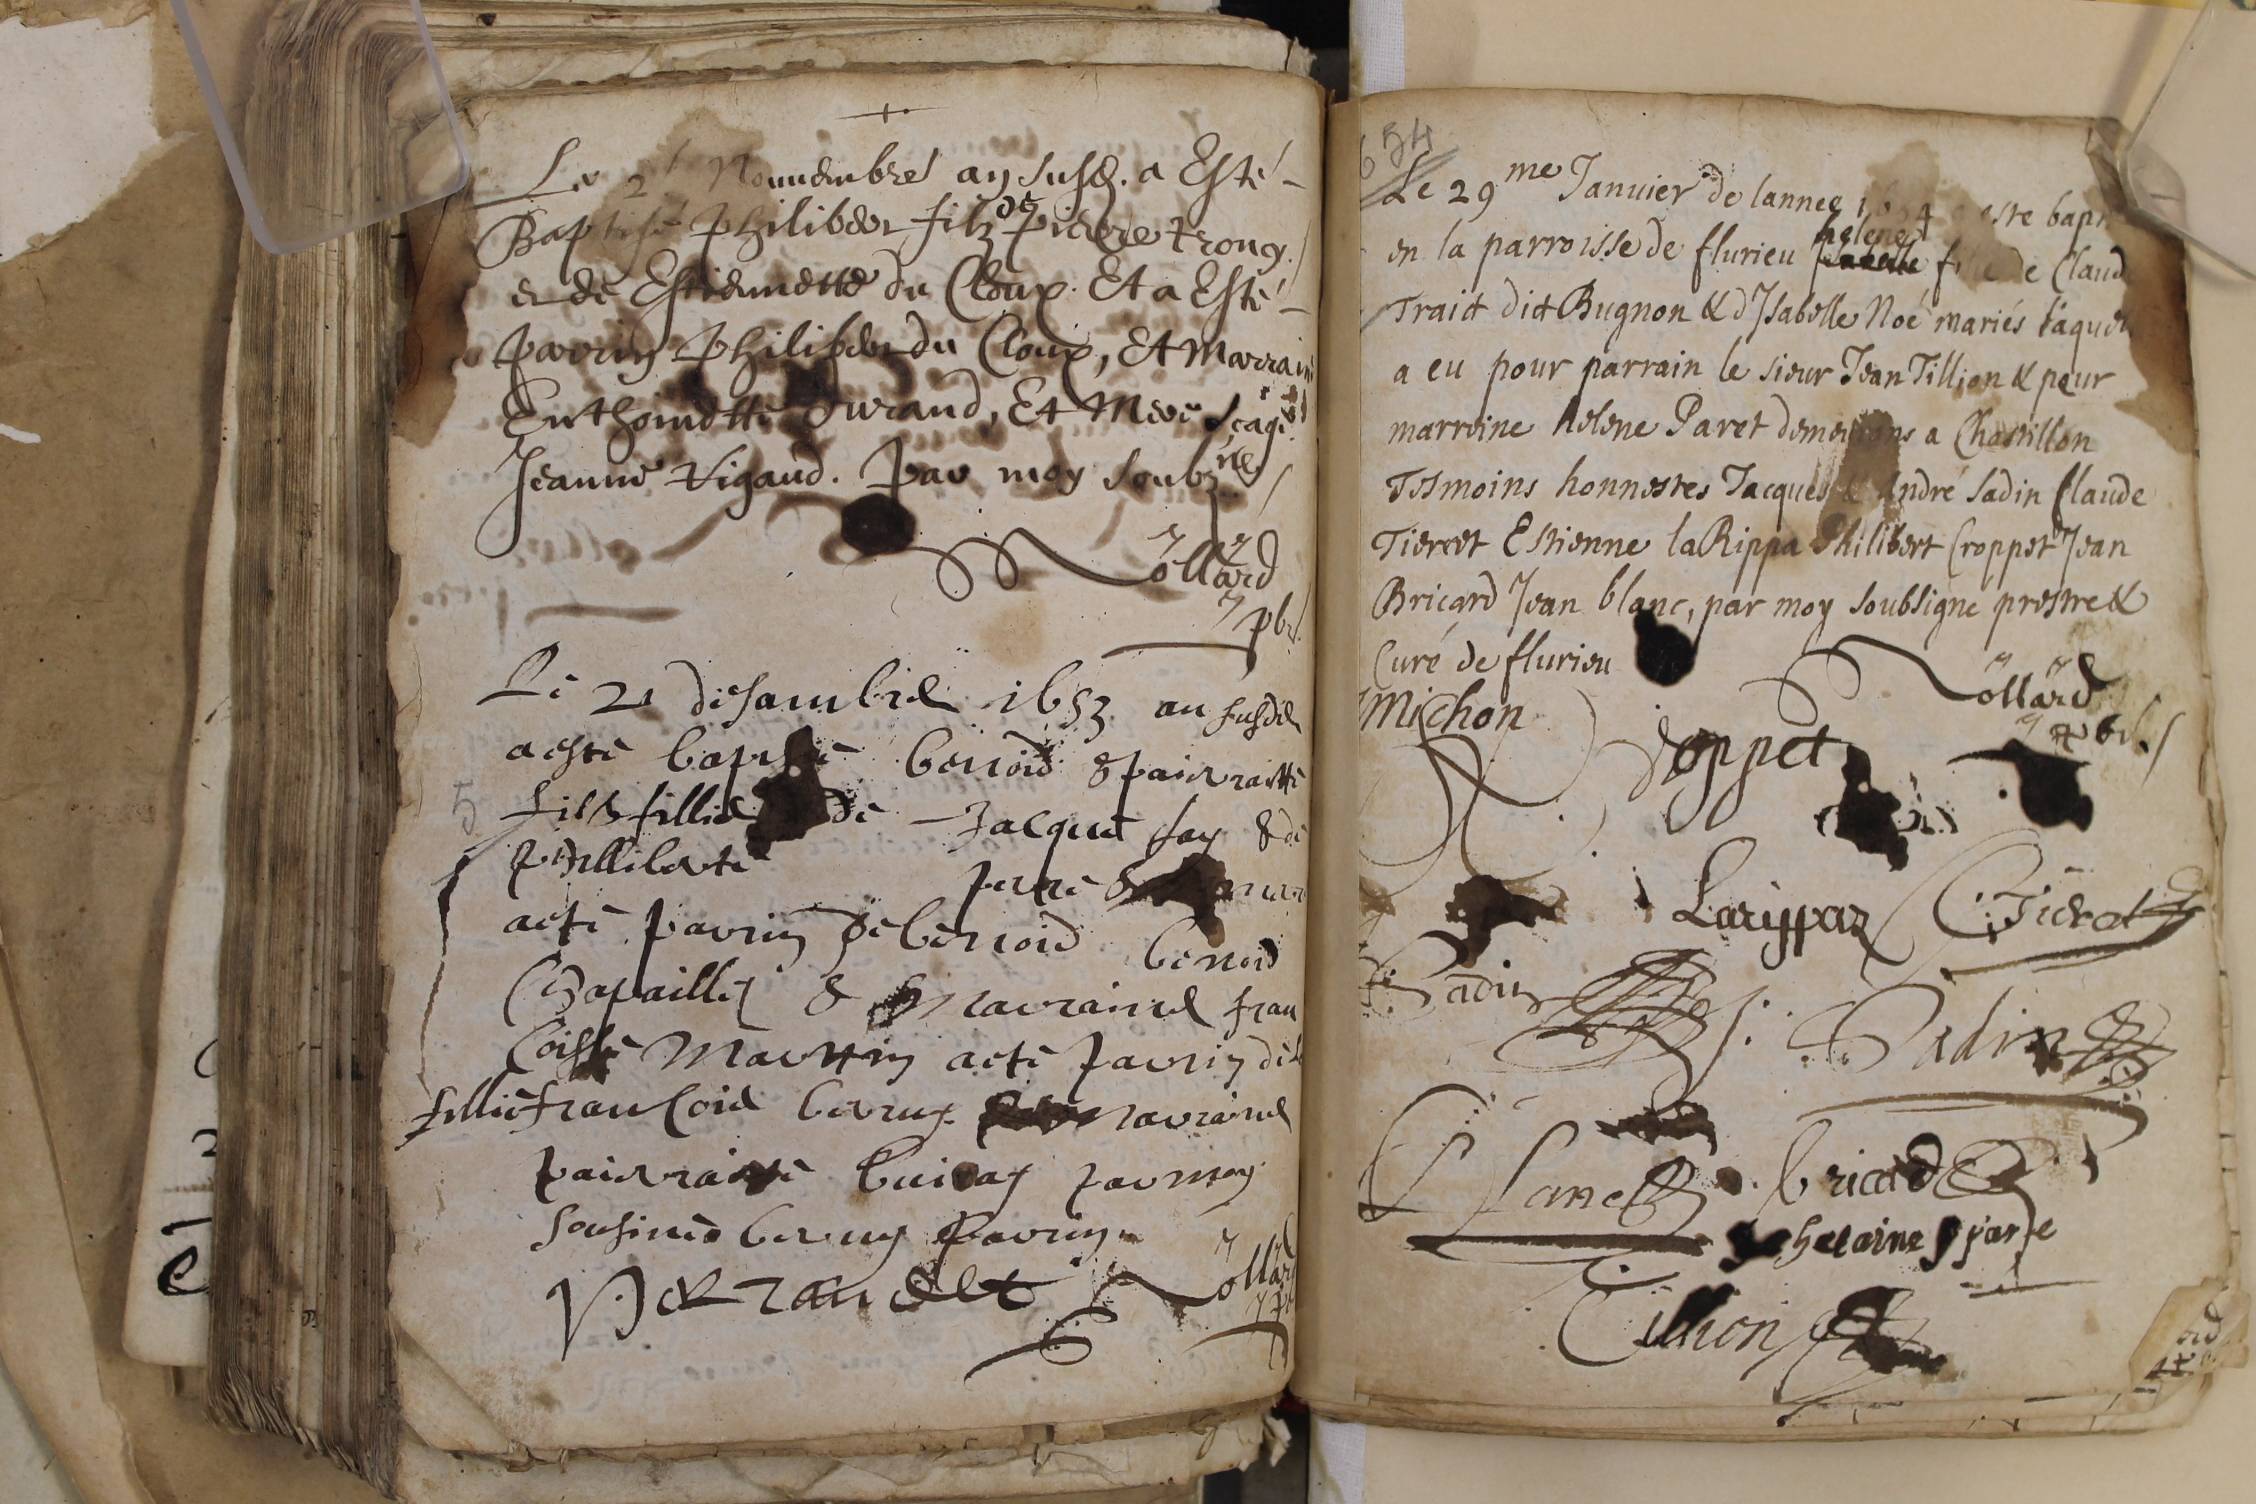 Le 2 Nouuembre an susd. a Esté
Baptisé philibert filz de pierre trony
et de Estiennette du Cloux. Et a Esté
parrin philibert du Cloux, Et Marraine
Enthoinette Durand, Et Mere Sage
Jeanne Vigaud. Par moy soubzne
Vollard
pbr
Le 21 desambre 1653 an susdit
a este baptise benoid & pairraitte
fils & fillie de Jacque fay & de
phillibarte
acte parrin de benoid benoid
Chapaillie & Marraine fran
Coisse Martin acte parrin de
fillie francoid berny marraine
pairraitte buiray par moy
sousine berny parrin
Verraudet
Vollard
5
654
Le 29me Januier de lannee 1654 a este bapt
en la parroisse de flurieu helene fille de Claud
Traict dict Bugnon & d'Isabelle Noé mariés laquel
a eu pour parrain le sieur Jean Tillion & pour
marreine helene Paret demeurans a Chastillon
Tesmoins honnestes Jacques & André Sadin flaude
Tierret Estienne la Rippa Philibert Croppet Jean
Bricard Jean blanc, par moy soubsigné prestre &
Curé de flurieu
Vollard
pbr.
Michon
Croppet
Larippaz Tieret
Sadin
J. Sadin
Blanc bricard
helaine pare
Tillion